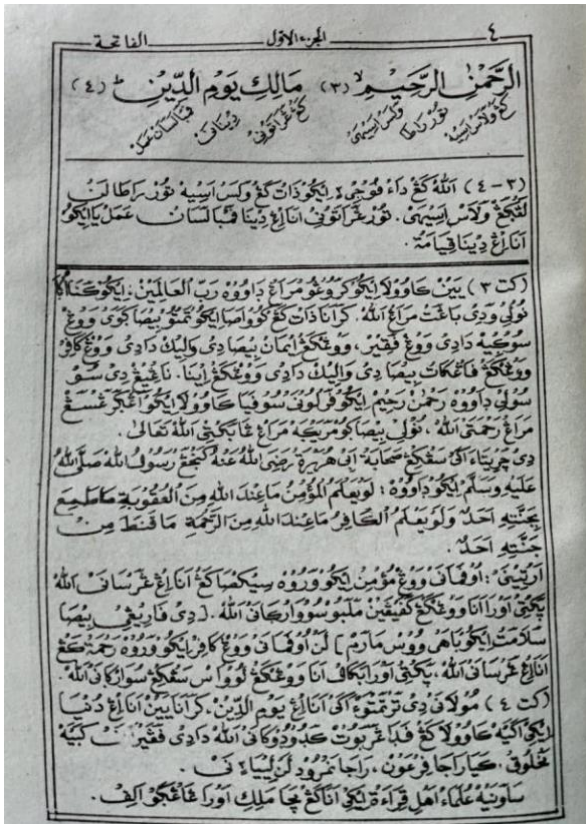 ٤ الجزء الاول الفاتحة
الرَّحْمٰنِ الرَّحِيْمِ (٣) مَالِكِ يَوْمِ الدِّيْنِ (٤)
كڠ ولاس اسيه تور راطا ولس اسيهى كڠ ڠراتونى دينانى ڤمبالسان عمل
(٣-٤) اَللّٰهُ كڠ داء فوجى٢ ايكو ذات كڠ ولس اسيه تور راطا لن
لڠكڠ ولاس اسيهى. تور ڠراتونى اناإڠ دينا ڤمبالسان عمل يا ايكو
اناإڠ دينا قيامة.
(كت ٣) يين كاوولا ايكو كروڠو مراڠ داووه رَبِّ الْعَالَمِيْنَ، ايكو
نولى ودى باڠت مراڠ الله. كرانا ذات كڠ كوواصا ايكو تمتو بيصا ڬاوى ووڠ
سوڬيه دادى ووڠ فقير، ووڠكڠ ايمان بيصا دى واليك دادى ووڠ كافر
ووڠكڠ فاڠكات بيصا دى واليك دادى ووڠكڠ اينا. ناڠيڠ دى سو
سولى داووه رحمٰن رحيم ايكو ڤرلونى سوفيا كاوولا ايكو
مراڠ رحمتى الله، نولى بيصا كومريكه مراڠ ڠابكتى الله تعالى.
دى چريتاءاكى سڠكڠ صحابة ابى هريرة رضي الله عنه كنجڠ رسول الله صلى الله
عليه وسلم ايكو داووه: لَوْ يَعْلَمُ الْمُؤْمِنُ مَا عِنْدَ اللهِ مِنَ الْعُقُوْبَةِ مَا طَمِعَ
بِجَنَّتِهِ اَحَدٌ وَلَوْ يَعْلَمُ الْكَافِرُ مَا عِنْدَ اللهِ مِنَ الرَّحْمَةِ مَا قَنَطَ مِنْ
جَنَّتِهِ اَحَدٌ.
ارتينى: اوڤمانى ووڠ مؤمن ايكو وروه سيكصا كڠ اناإڠ ڠرسانى الله
يكتى اورا انا ووڠكڠ كڤيڠين ملبو سووارڬانى الله. [دى ڤاريڠى بيصا
سلامت ايكو باهى ووس مارم] لن اوڤمانى ووڠ كافر ايكو وروه رحمة كڠ
اناإڠ ڠرسانى الله، يكتى اورا بكال انا ووڠكڠ لوواس سڠكڠ سوارڬانى الله.
(كت ٤) مولانى دى ترتمتوءاكى اناإڠ يوم الدين، كرانا يين اناإڠ دنيا
ايكى اكيه كاوولا كڠ فدا ڠربوت كدودوكانى الله دادى ڤڠيرنى كبيه
مخلوق. كيا راجا فرعون، راجا نمرود لن لييا٢نى.
ساونيه علماء اهل قراءة ايكى اناكڠ مچا مَلِكِ اورا ڠاڠڬو الف.